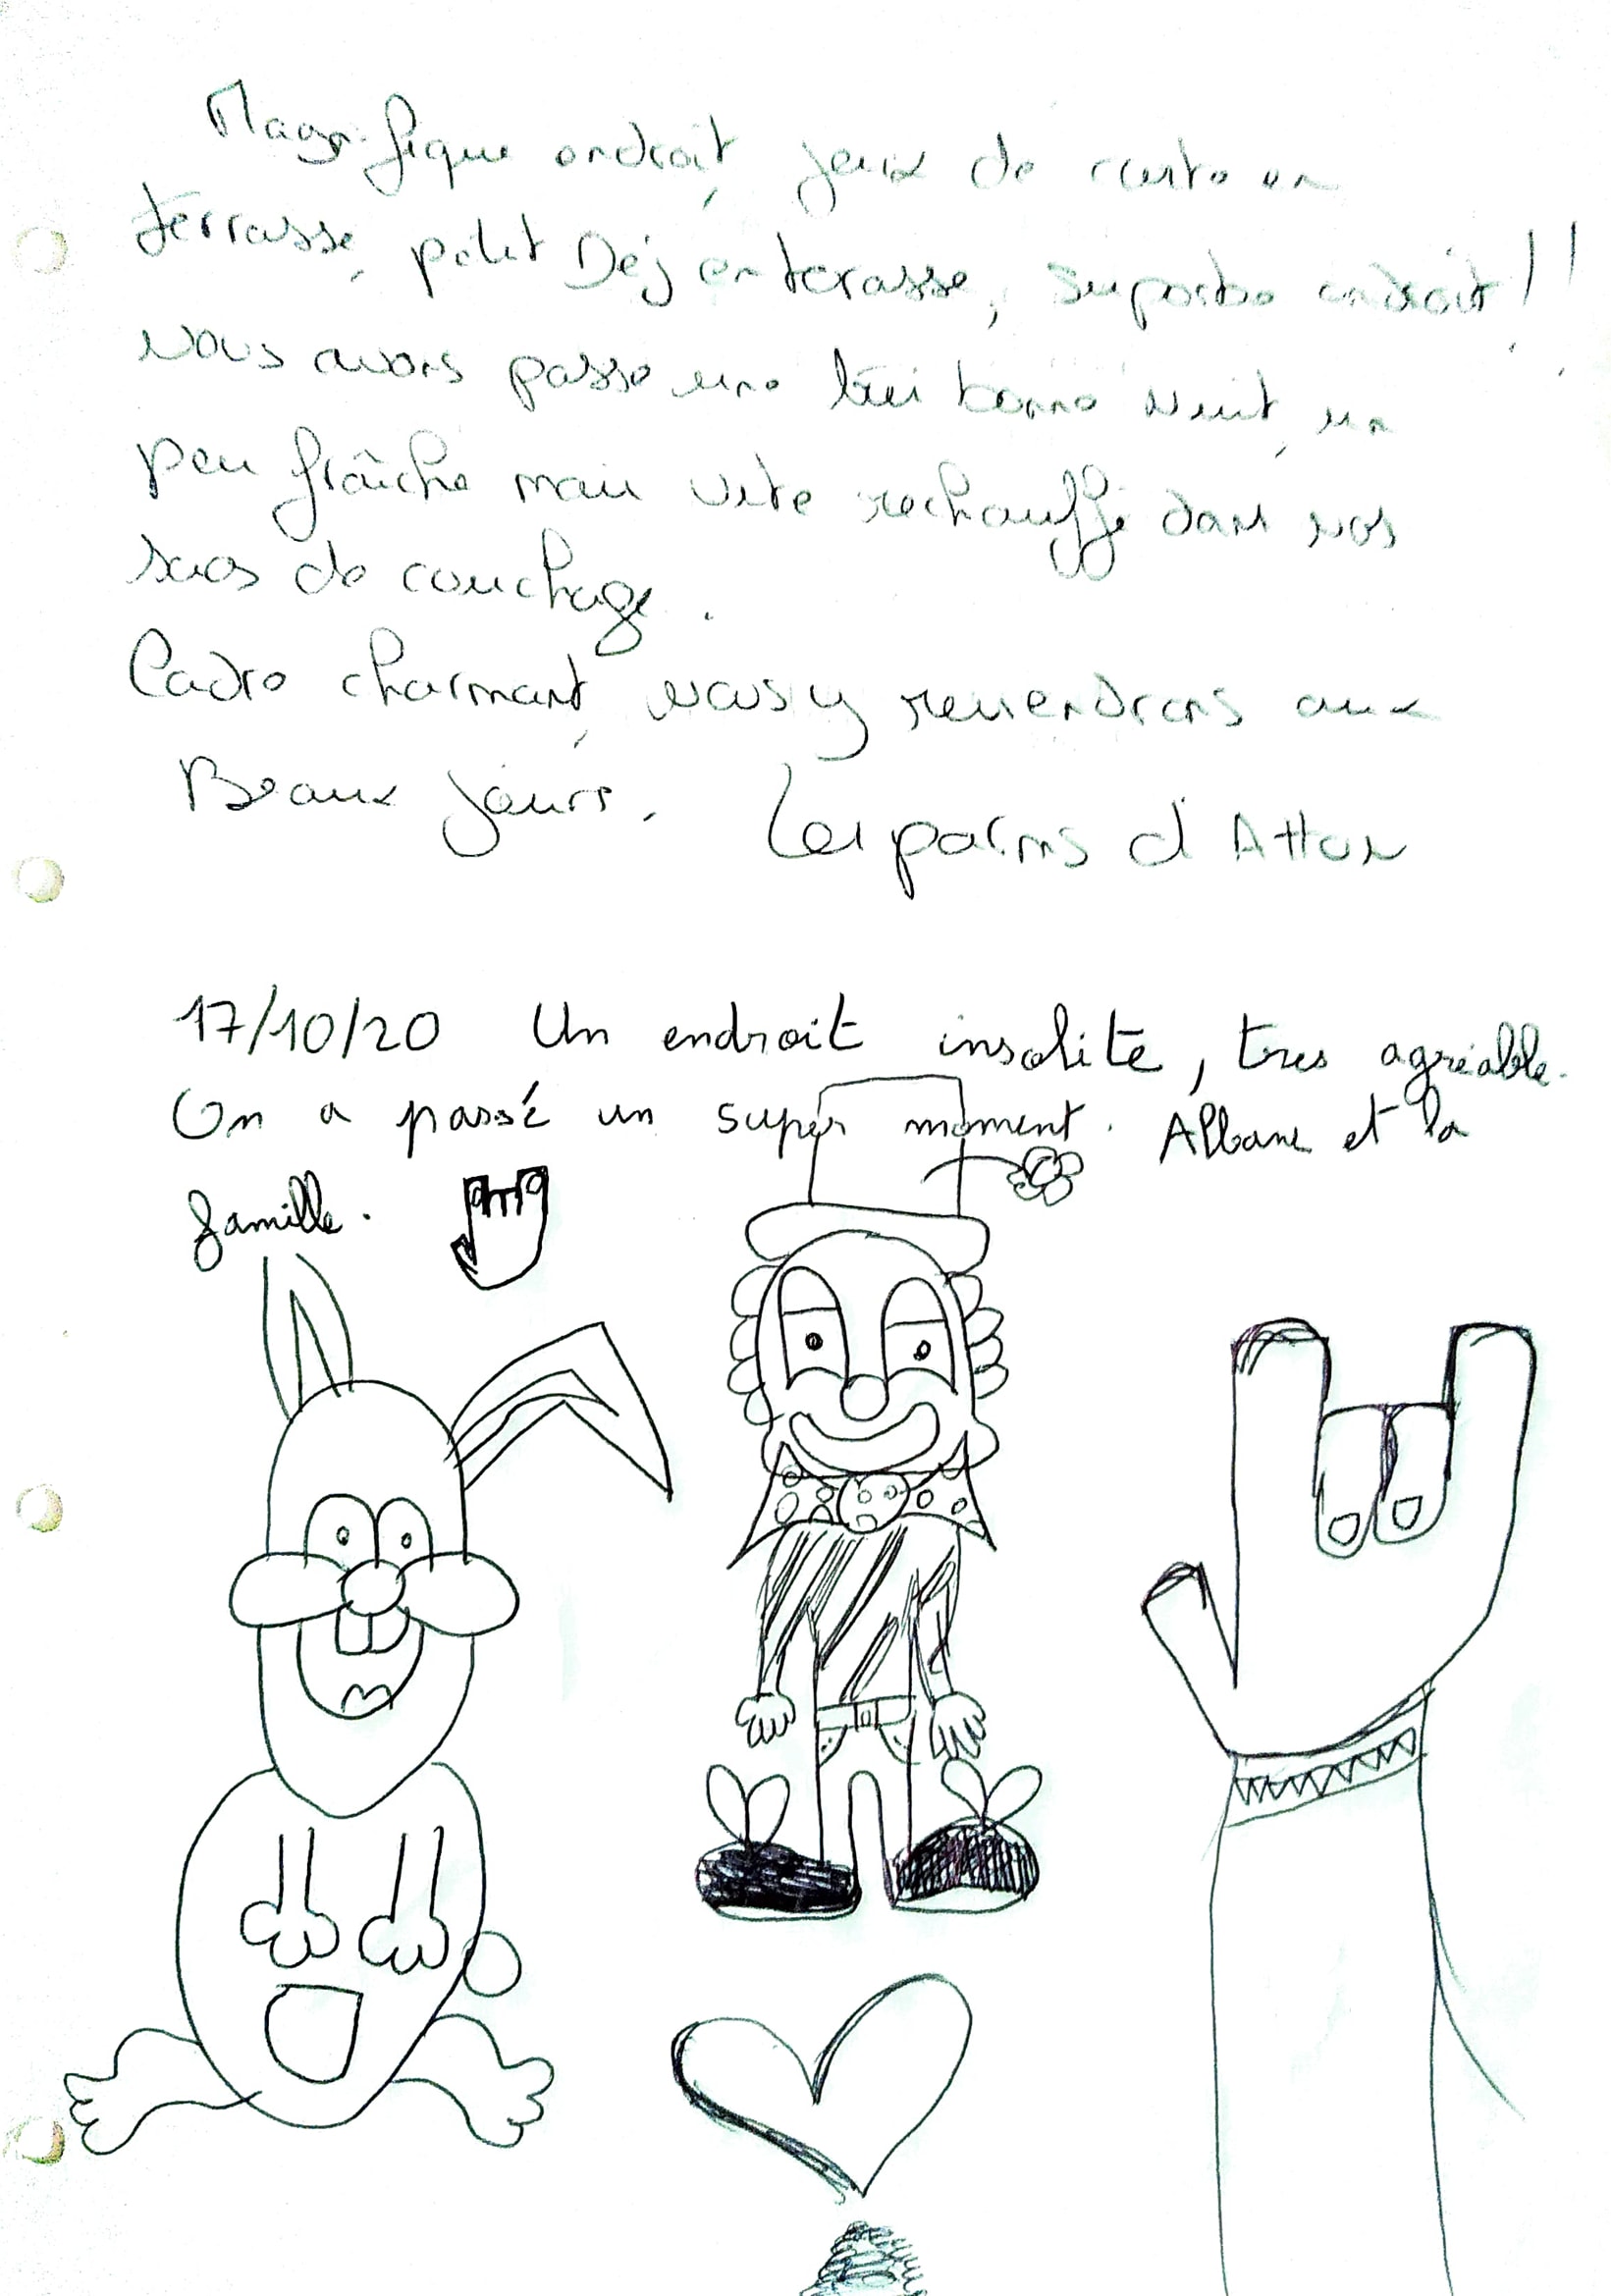 Magnifique endroit, jeux de carte en
terrasse, petit Déj en terasse, superbe endroit!!
Nous avons passe une trés bonne nuit, un
peu fraîche mais vite rechauffé dans nos
sacs de couchage.
Cadre charmant, nous y reviendrons aux
Beaux jours. Les parins d'
17/10/20 Un endroit insolite, tres agréable.
On a passé un super moment. Albane et la
famille.